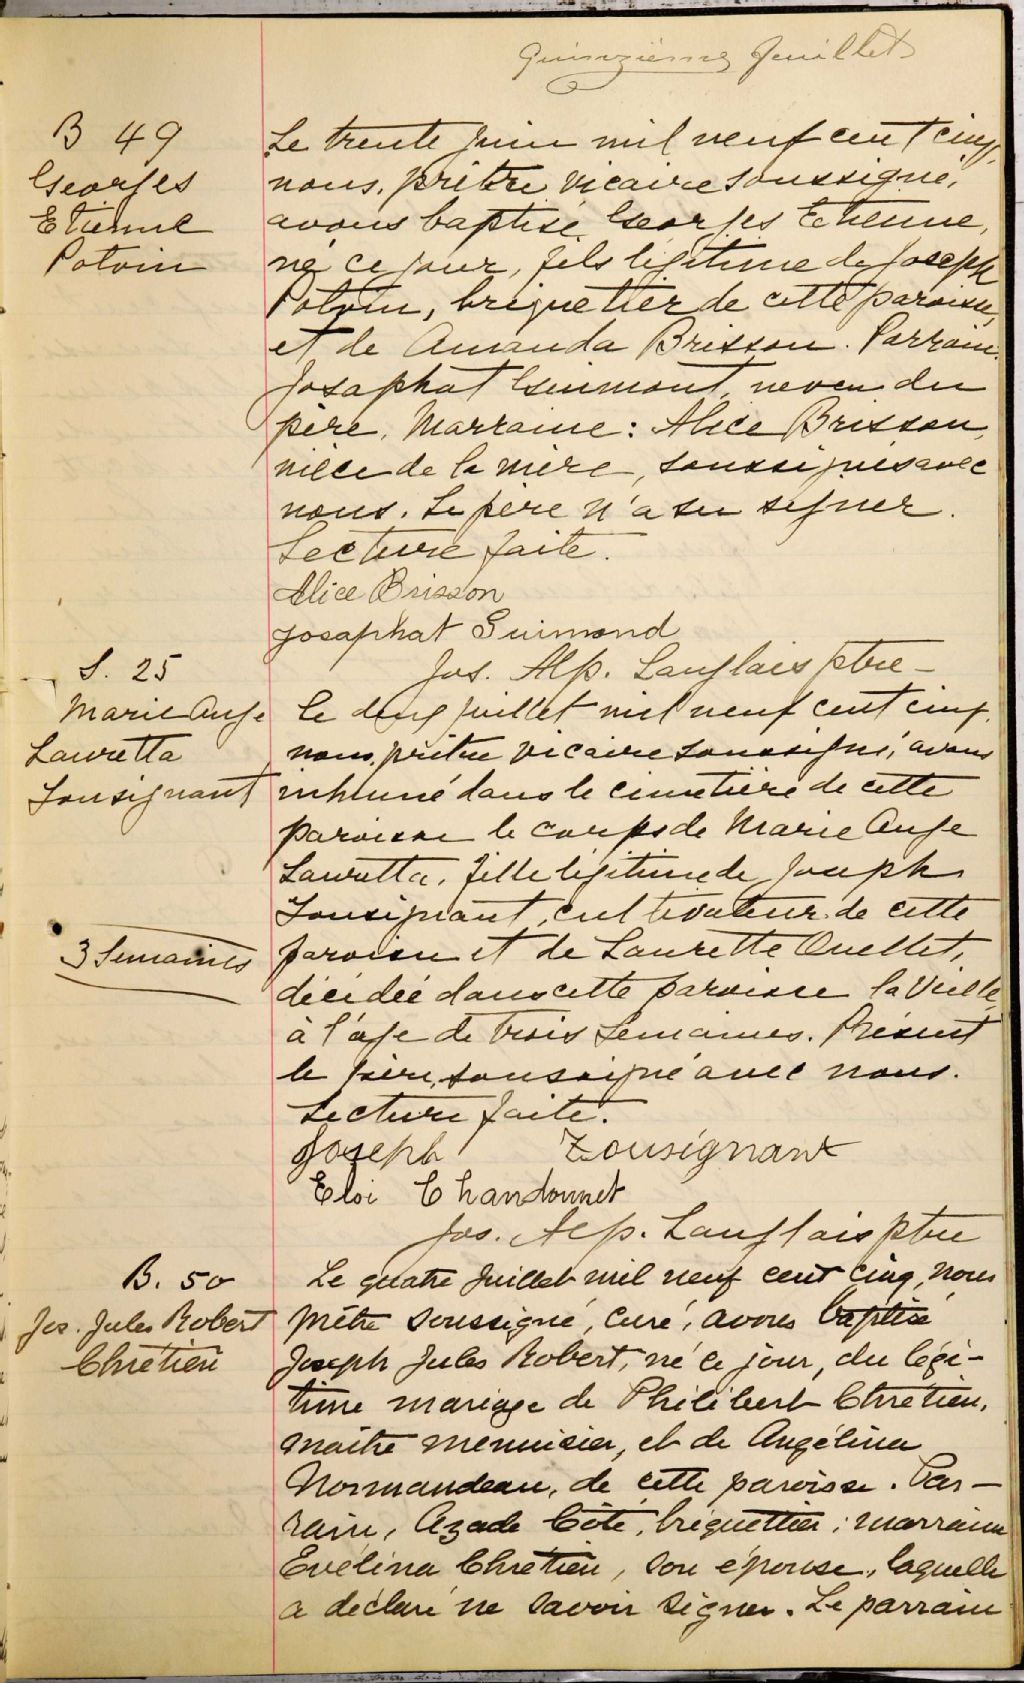 Quinzième feuillet
B 49
Georges
Etienne
Potvin
Le trente juin mil neuf cent cinq,
nous, prêtre vicaire soussigné,
avons baptisé Georges Etienne,
né ce jour, fils légitime de Joseph
Potvin, briquetier de cette paroisse,
et de Amanda Brisson. Parrain:
Josaphat Guimont, neveu du
père, Marraine: Alice Brisson,
nièce de la mère, soussignés avec
nous. Le père n'a su signer.
Lecture faite.
Alice Brisson
Josaphat Guimond
Jos. Alp. Langlais ptre
S. 25
Marie Ange
Lauretta
Tousignant
3 Semaines
Le deux juillet mil neuf cent cinq,
nous, prêtre vicaire soussigné, avons
inhumé dans le cimetière de cette
paroisse le corps de Marie Ange
Lauretta, fille légitime de Joseph
Tousignant, cultivateur de cette
paroisse et de Laurette Ouellet,
décédée dans cette paroisse la veille,
à l'âge de trois semaines. Présent
le père, soussigné avec nous.
Lecture faite.
Joseph Tousignant
Eloi Chandonnet
Jos. Alp. Langlais ptre
B. 50
Jos. Jules Robert
Chrétien
Le quatre Juillet mil neuf cent cinq, nous
prêtre soussigné, curé, avons baptisé
Joseph Jules Robert, né ce jour, du légi-
time mariage de Philibert Chretien,
maître menuisier, et de Angélina
Normandeau, de cette paroisse. Par-
rain, Azade Côté, briquettier; marraine
Evélina Chrétien, son épouse, laquelle
a déclaré ne savoir signer. Le parrain